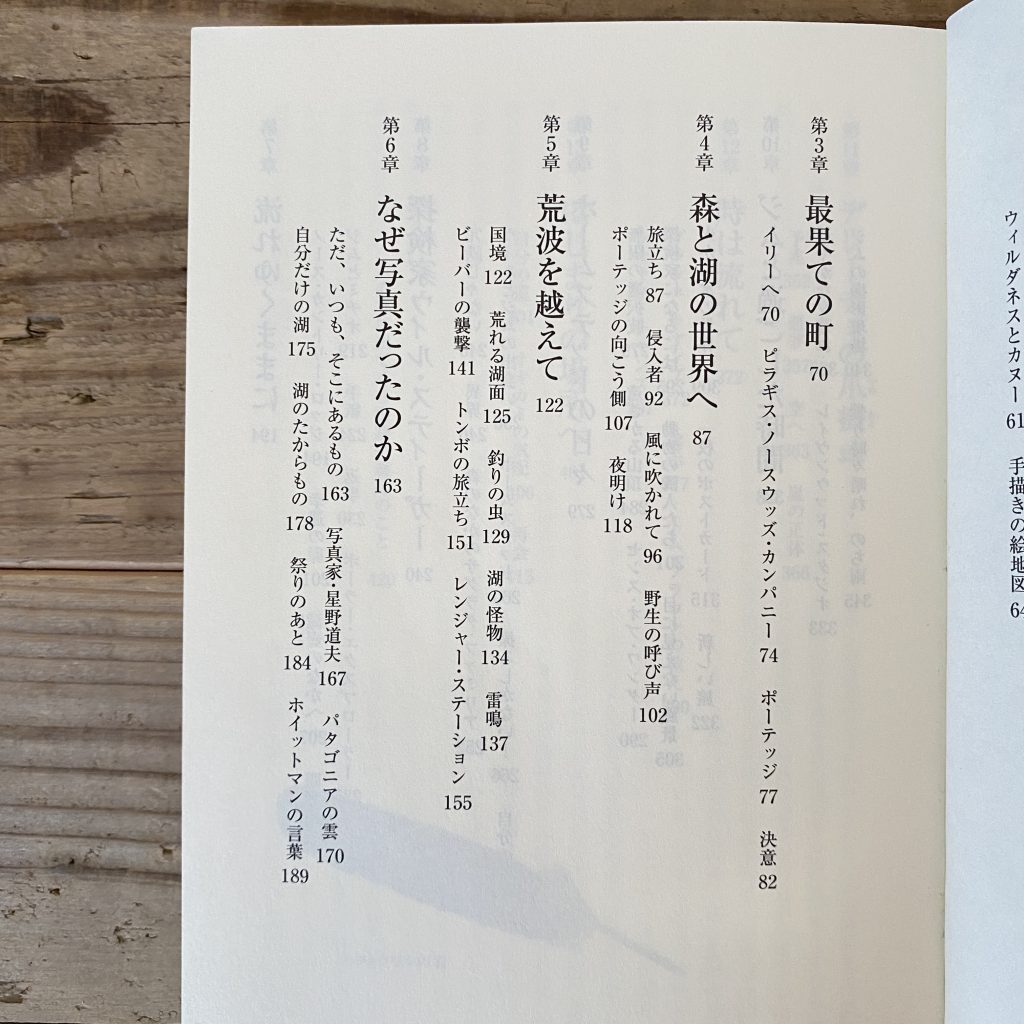 ウィルダネスとカヌー 61 手描きの絵地図 64
第3章 最果ての町 70
イリーへ 70 ピラギス・ノースウッズ・カンパニー 74 ポーテッジ 77 決意 82
第4章 森と湖の世界へ 87
旅立ち 87 侵入者 92 風に吹かれて 96 野生の呼び声 102
ポーテッジの向こう側 107 夜明け 118
第5章 荒波を越えて 122
国境 122 荒れる湖面 125 釣りの虫 129 湖の怪物 134 雷鳴 137
ビーバーの襲撃 141 トンボの旅立ち 151 レンジャー・ステーション 155
第6章 なぜ写真だったのか 163
ただ、いつも、そこにあるもの 163 写真家・星野道夫 167 パタゴニアの雲 170
自分だけの湖 175 湖のたからもの 178 祭りのあと 184 ホイットマンの言葉 189